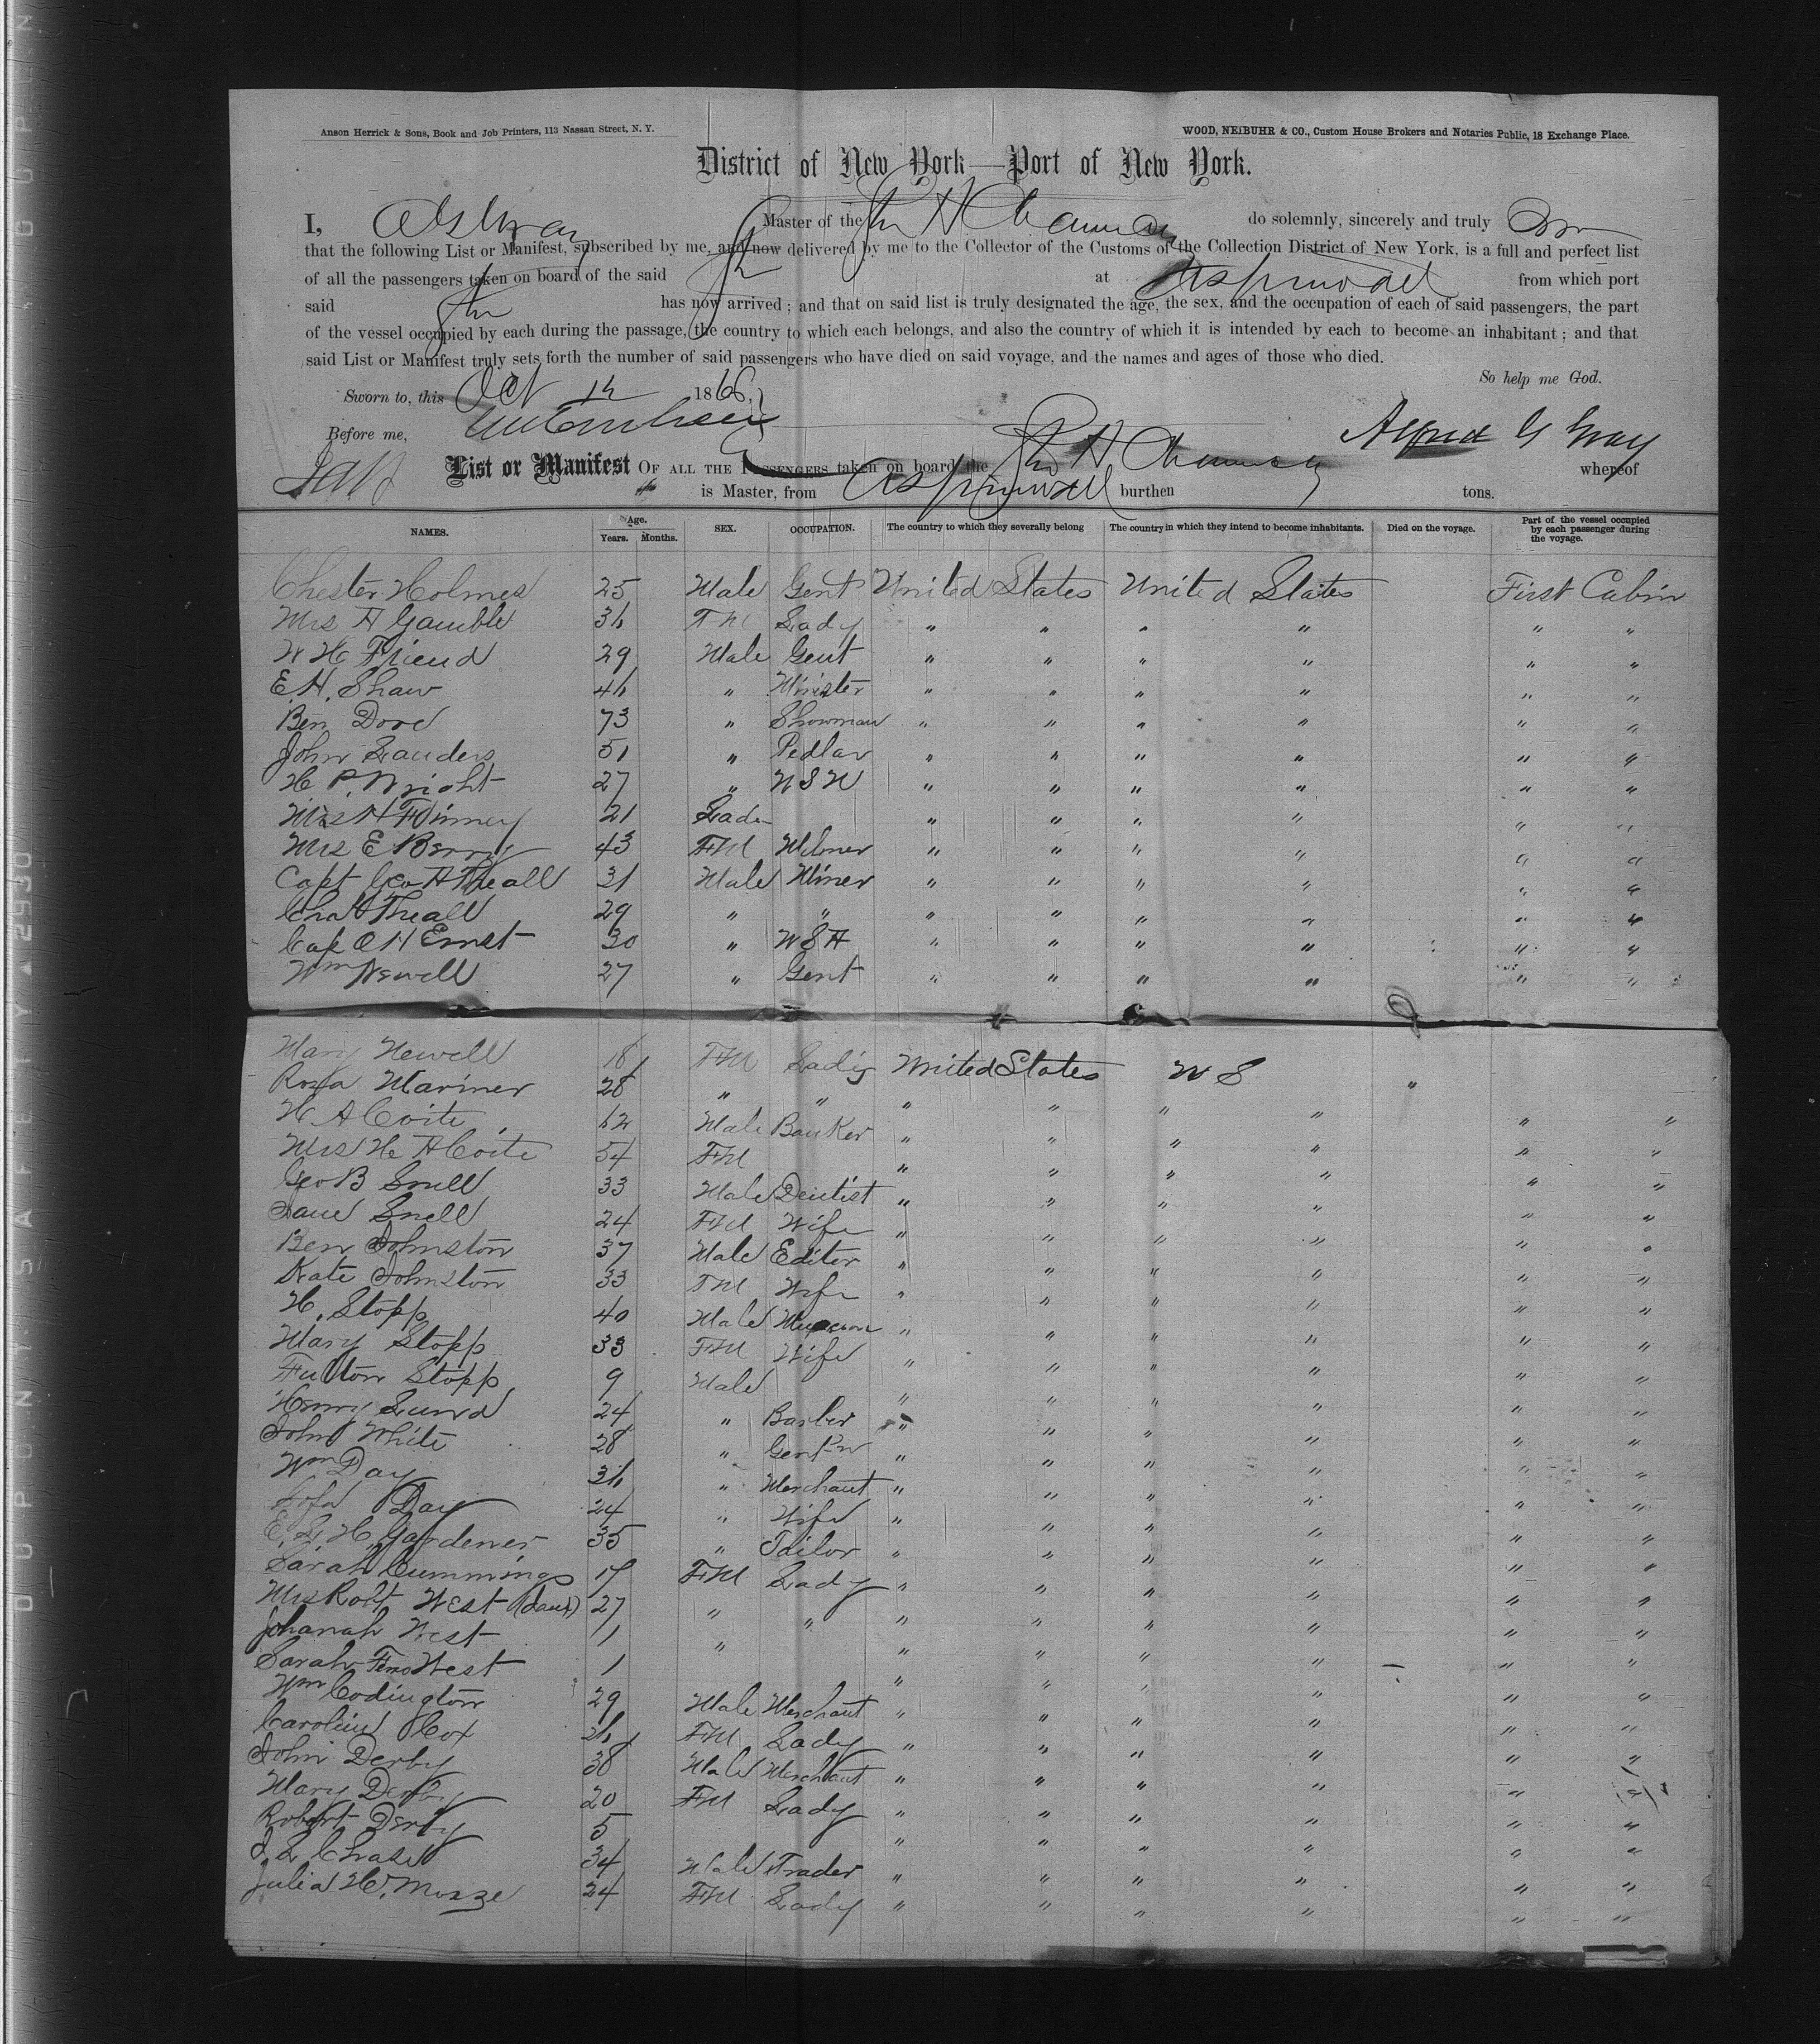 Anson Herrick & Sons, Book and Job Printers, 113 Nassau Street, N. Y.
WOOD, NEIBUHR & CO., Custom House Brokers and Notaries Public, 18 Exchange Place.
District of New York—Port of New York.
I, A G Gray Master of the Str H Chauncey do solemnly, sincerely and truly
that the following List or Manifest, subscribed by me, and now delivered by me to the Collector of the Customs of the Collection District of New York, is a full and perfect list
of all the passengers taken on board of the said Str at Aspinwall from which port
said Str has now arrived; and that on said list is truly designated the age, the sex, and the occupation of each of said passengers, the part
of the vessel occupied by each during the passage, the country to which each belongs, and also the country of which it is intended by each to become an inhabitant; and that
said List or Manifest truly sets forth the number of said passengers who have died on said voyage, and the names and ages of those who died.
So help me God.
Sworn to, this Oct 12 1866,
Before me, Alfred G Gray
List or Manifest OF ALL THE PASSENGERS taken on board the Str H Chauncey whereof
is Master, from Aspinwall burthen tons.
NAMES. Age. Years. Months. SEX. OCCUPATION. The country to which they severally belong The country in which they intend to become inhabitants. Died on the voyage. Part of the vessel occupied by each passenger during the voyage.
Chester Holmes 25 Male Gent United States United States First Cabin
Mrs A Gamble 36 FM Lady " " " " " "
W H Friend 29 Male Gent " " " " " "
E. H. Shaw 46 " Minister " " " " " "
Ben Dord 73 " Showman " " " " " "
John Landers 51 " Pedlar " " " " " "
H P. Wright 27 " U S N " " " " " "
Mrs H Finney 21 Lady " " " " " "
Mrs E Berry 43 FM Milner " " " " " "
Capt Geo H Theall 31 Male Miner " " " " " "
Chas H Theall 29 " " " " " " " "
Cap O H Ernst 30 " U S A " " " " " "
Wm Newell 27 " Gent " " " " " "
Mary Newell 18 FM Lady United States U S "
Rosa Mariner 28 " " " " " " " "
H A Coite 62 Male Banker " " " " " "
Mrs H A Coite 54 FM " " " " " "
Geo B Snell 33 Male Dentist " " " " " "
Jane Snell 24 FM Wife " " " " " "
Ben Johnston 37 Male Editor " " " " " "
Kate Johnston 33 FM Wife " " " " " "
H. Stopp 40 Male " " " " " "
Mary Stopp 33 FM Wife " " " " " "
Fulton Stopp 9 Male " " " " " "
Henry Lund 24 " Barber " " " " " "
John White 28 " Gent " " " " " "
Wm Day 36 " Merchant " " " " " "
Day 24 " Wife " " " " " "
E. L. H. Gardener 35 " Tailor " " " " " "
Sarah Cummings 17 FM Lady " " " " " "
Mrs Robt West 27 " " " " " " " "
Johanah West 1 " " " " " " "
Sarah West 1 " " " " " "
Wm Codington 29 Male Merchant " " " " " "
Caroline Cox 26 FM Lady " " " " " "
John Derby 38 Male Merchant " " " " " "
Mary Derby 20 FM Lady " " " " " "
Robert Derby 5 " " " " " "
J. L. Chase 34 Male Trader " " " " " "
Julia H. Morse 24 FM Lady " " " " " "
DUPONT SAFETY 2930